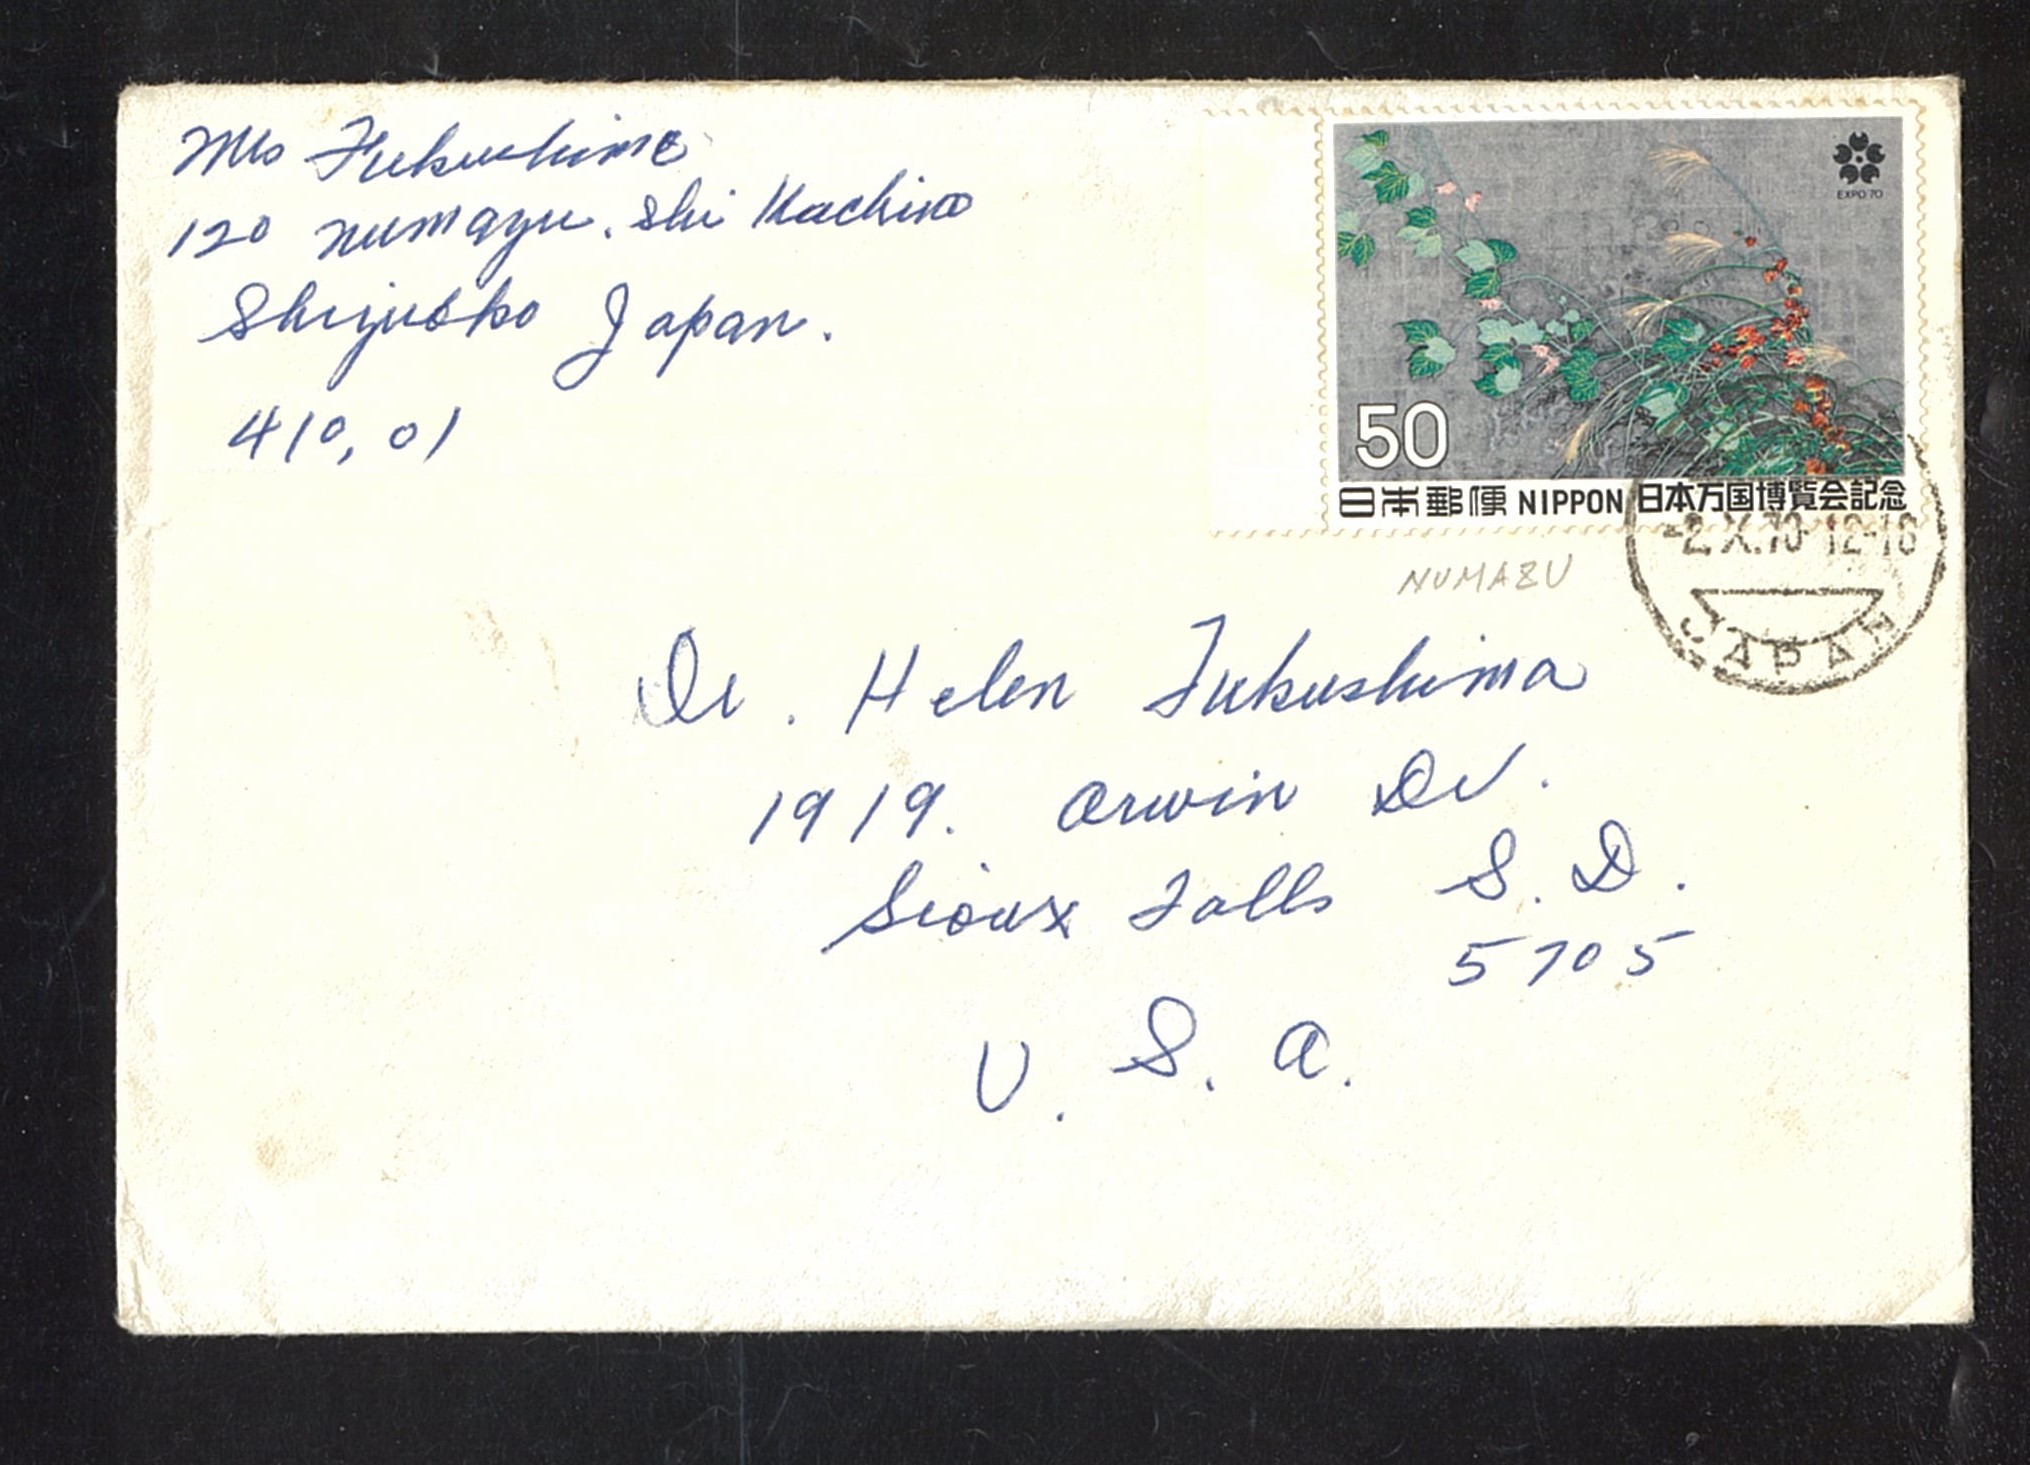 Mrs Fukushima
120 Numazu. Shi Uachino
Shizuoko Japan.
410, 01
EXPO'70
50
日本郵便 NIPPON 日本万国博覧会記念
-2.X.70 12-18
JAPAN
NUMAZU
Dr. Helen Fukushima
1919. Orwin Dr.
Sioux Falls S. D.
5705
U. S. A.